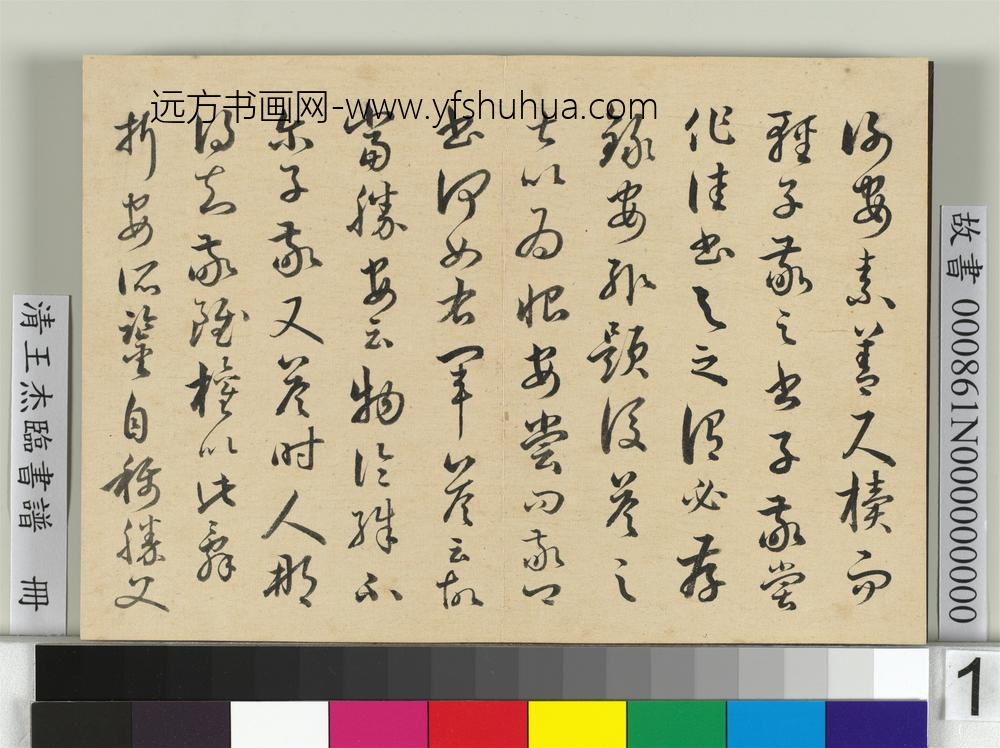 远方书画网-www.yfshuhua.com
謝安素善尺牘而
輕子敬之書子敬嘗
作佳書與之謂必存
錄安輒題後答之
甚以為恨安嘗問敬卿
書何如右軍答云故
當勝安云物論殊不
爾子敬又答時人那
得知敬雖權以此辭
折安所鑒自稱勝父
故書 000861N000000000
清王杰臨書譜 冊
1